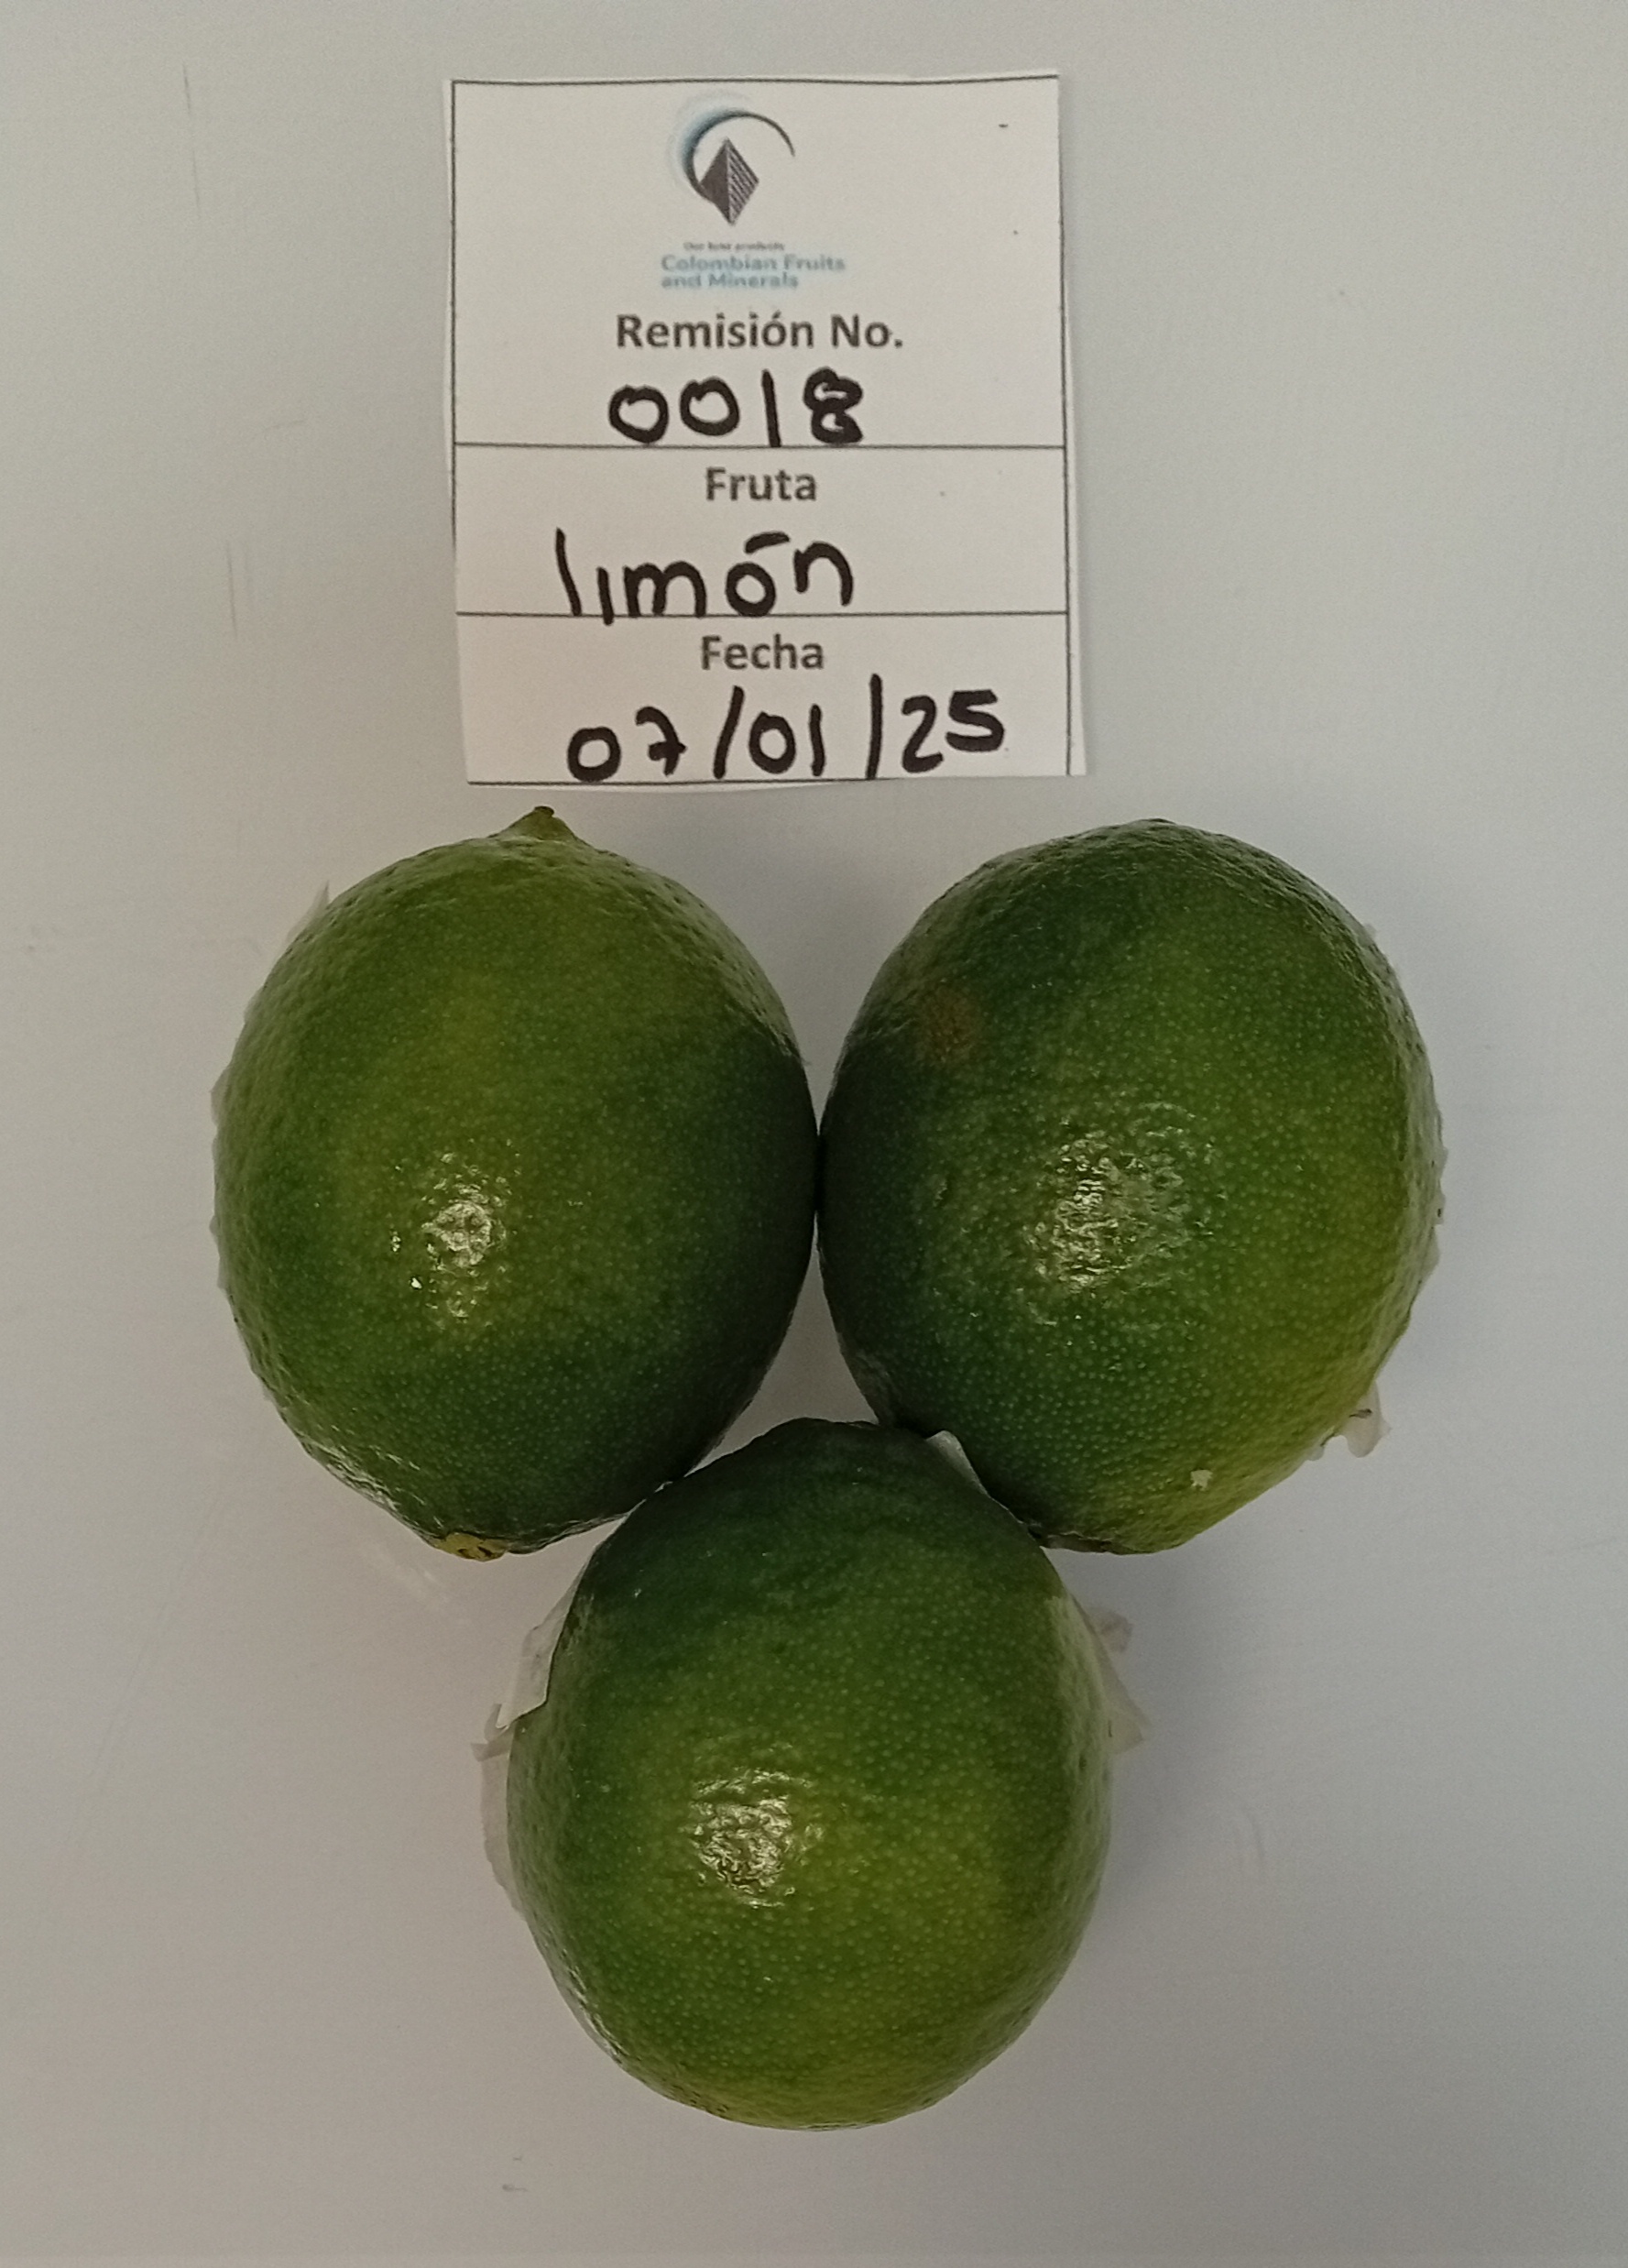 Our best products
Colombian Fruits
and Minerals
Remisión No.
0018
Fruta
limón
Fecha
07/01/25